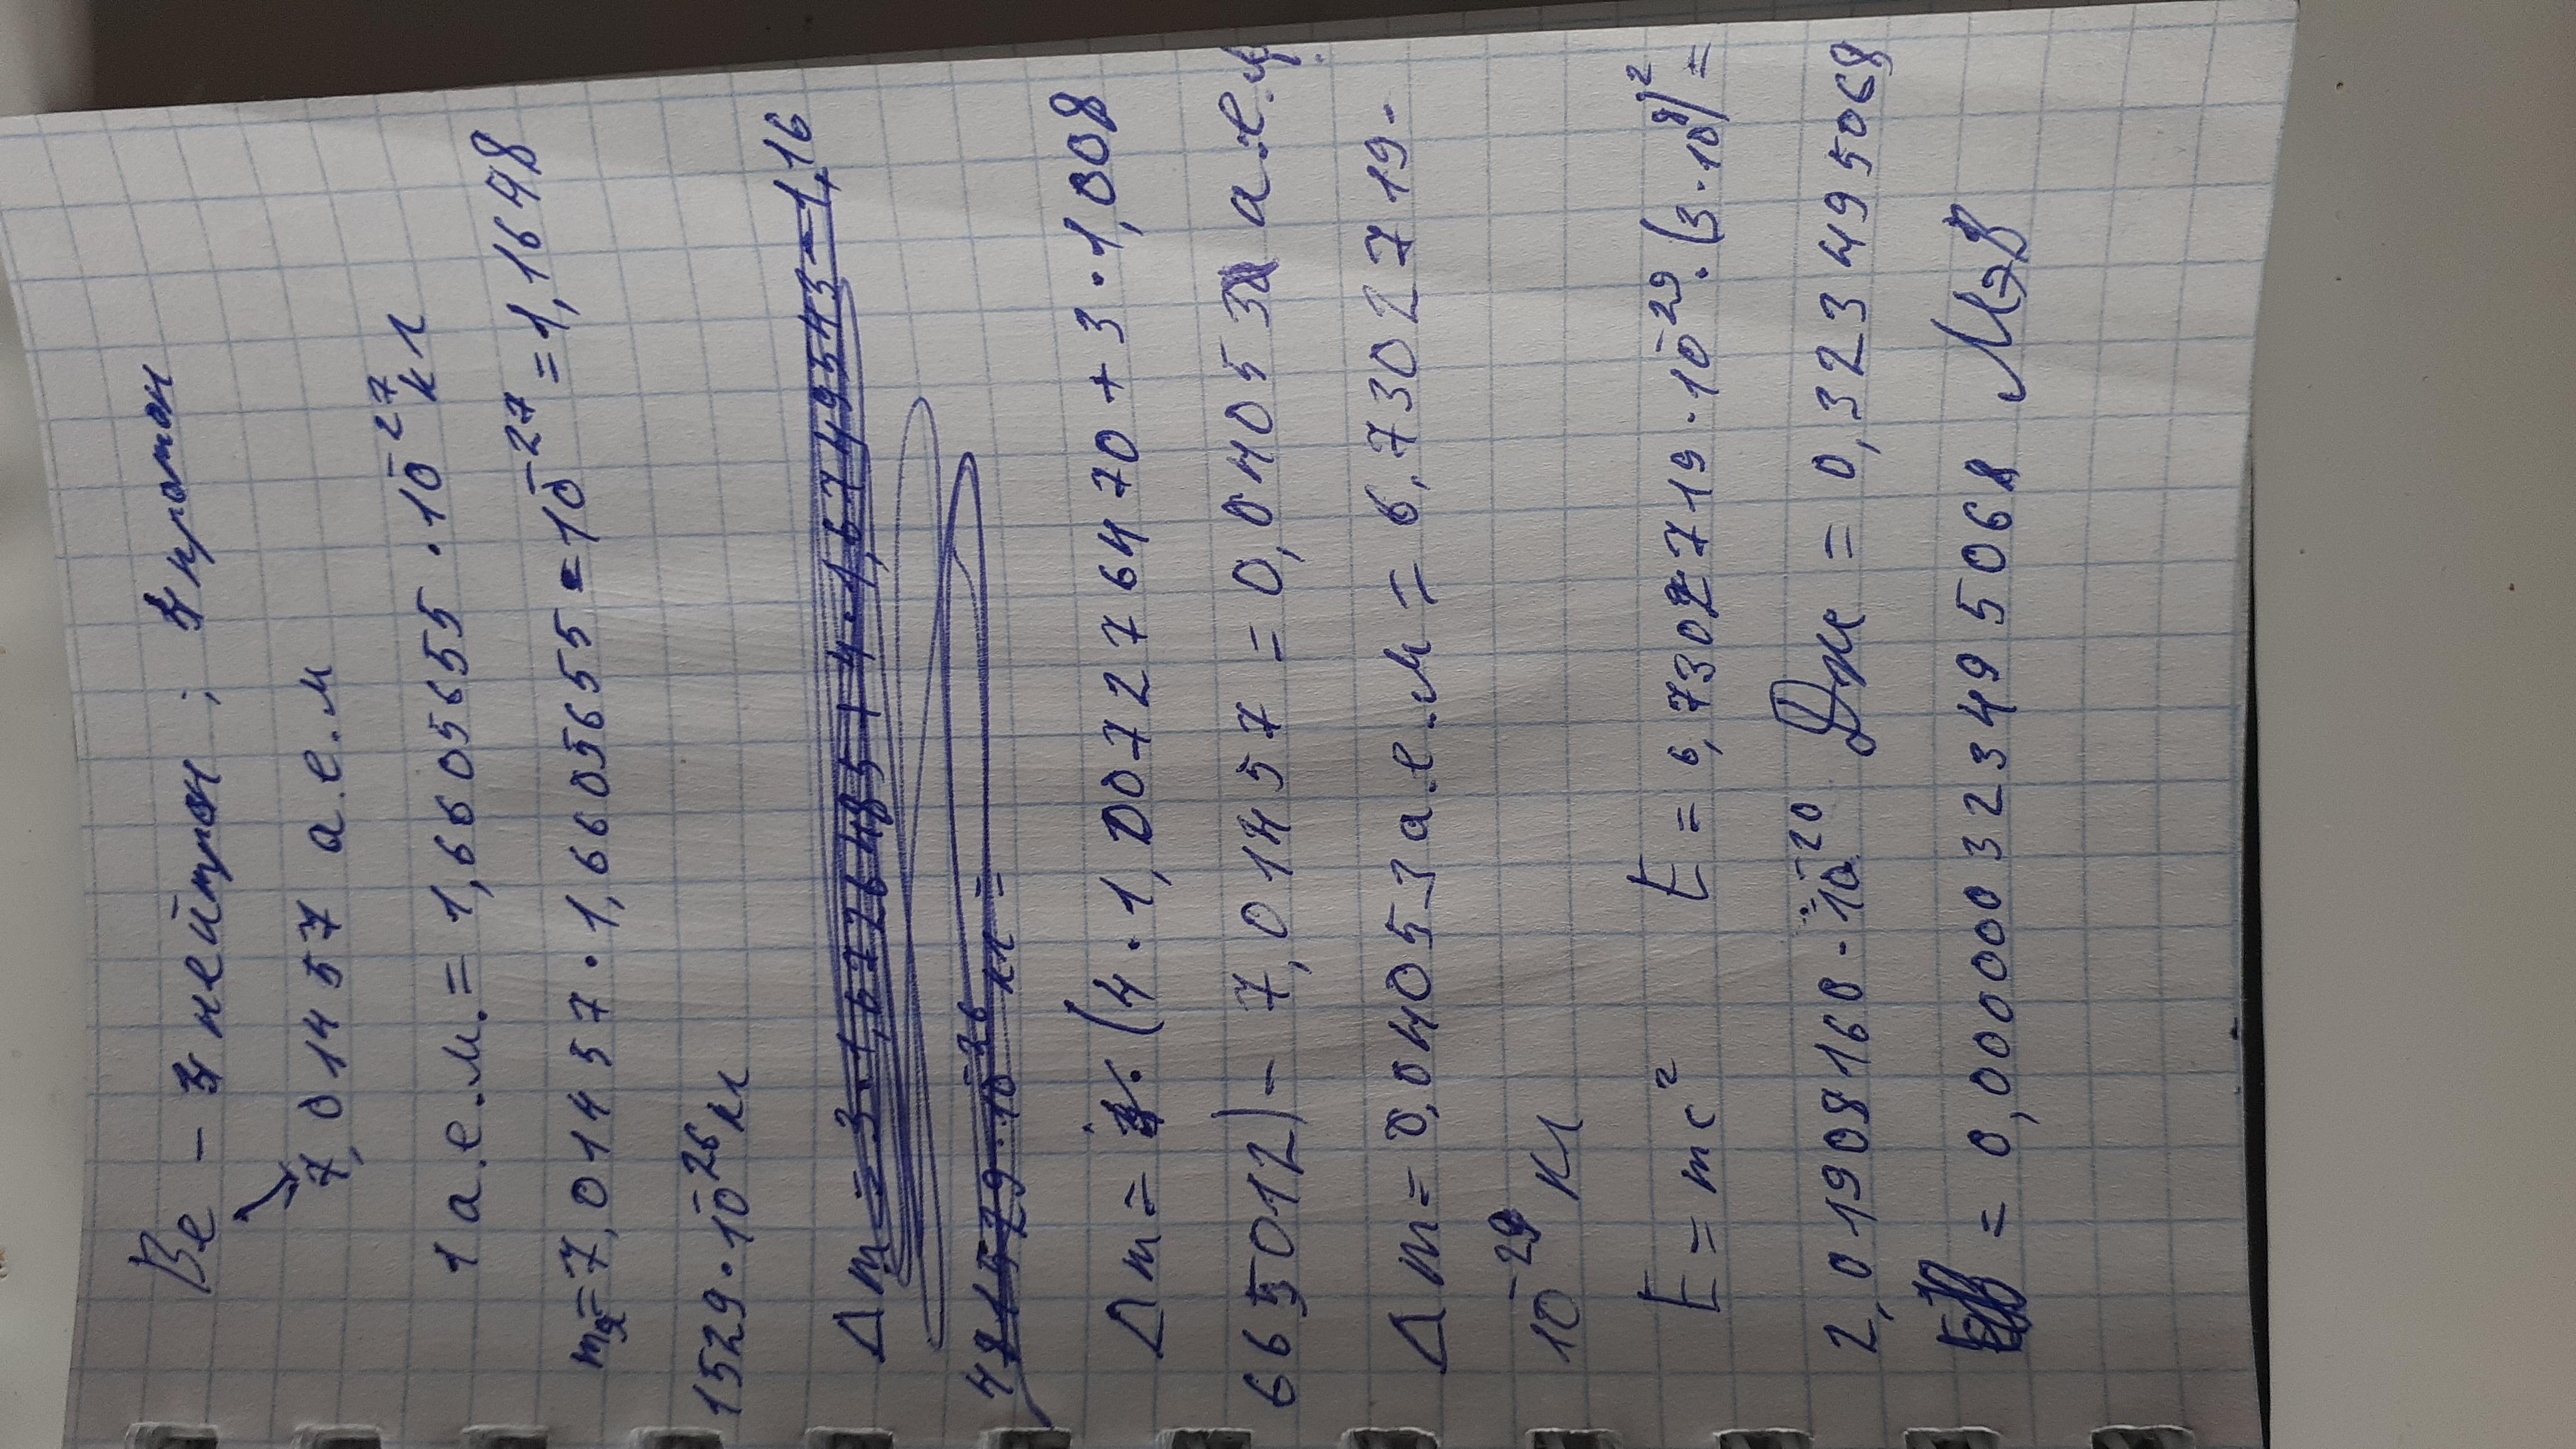 Be - 3 нейтрон; 4 протон
7,01457 а.е.м
1 а.е.м. = 1,6605655 · 10⁻²⁷ кг
mя = 7,01457 · 1,6605655 · 10⁻²⁷ = 1,1648
1529 · 10⁻²⁶ кг
Δm = (4 · 1,007276470 + 3 · 1,008
665012) - 7,01457 = 0,04053 а.е.м.
Δm = 0,04053 а.е.м = 6,7302719 ·
10⁻²⁹ кг
E = mc² E = 6,7302719 · 10⁻²⁹ · (3 · 10⁸)² =
2,01908160 · 10⁻²⁰ Дж = 0,323495068
= 0,000000323495068 МэВ